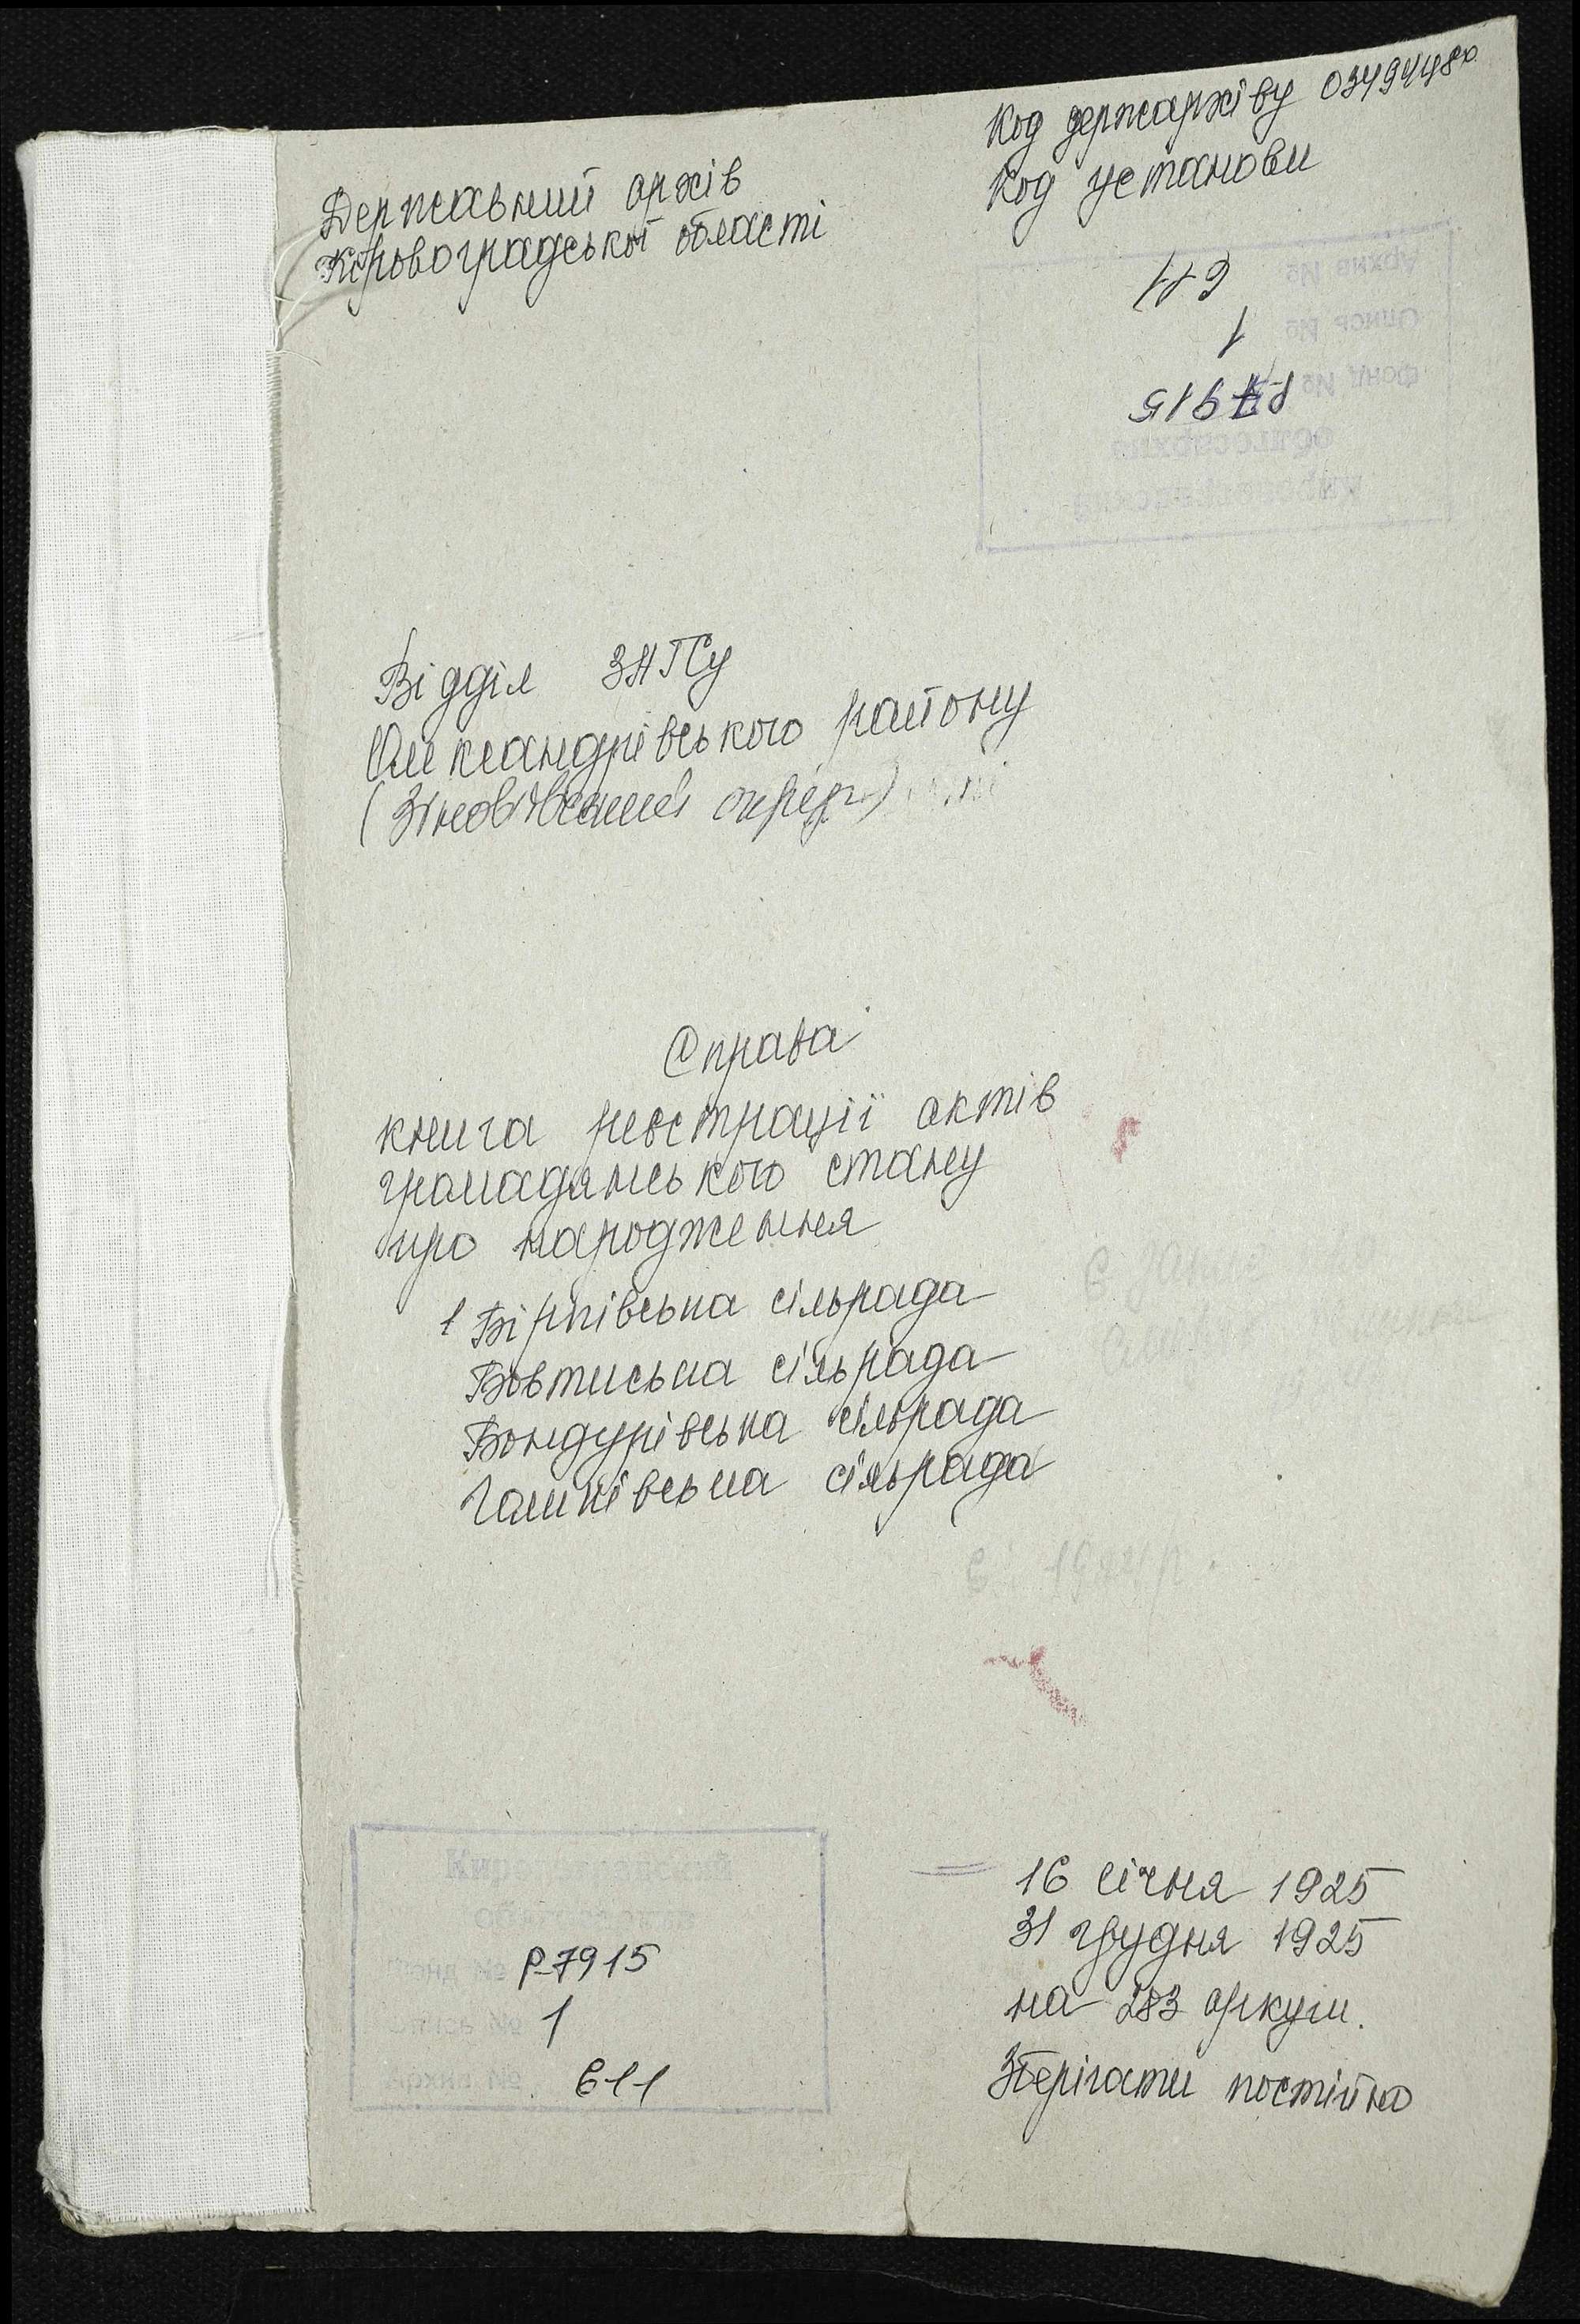 Код держархіву 03494480
Код установи
Державний архів
Кіровоградської області
611
1
Р-7915
Фонд №
Опись №
Архив №
Відділ ЗАГСу
Олександрівського району
(Зінов'євський округ)
Справа
книга реєстрації актів
громадянського стану
про народження
1 Бірківська сільрада
Бовтиська сільрада
Бондурівська сільрада
Ганнівська сільрада
Є 1924 р.
16 січня 1925
31 грудня 1925
на 283 аркуш.
Зберігати постійно
Фонд № Р-7915
Опись № 1
Архив № 611